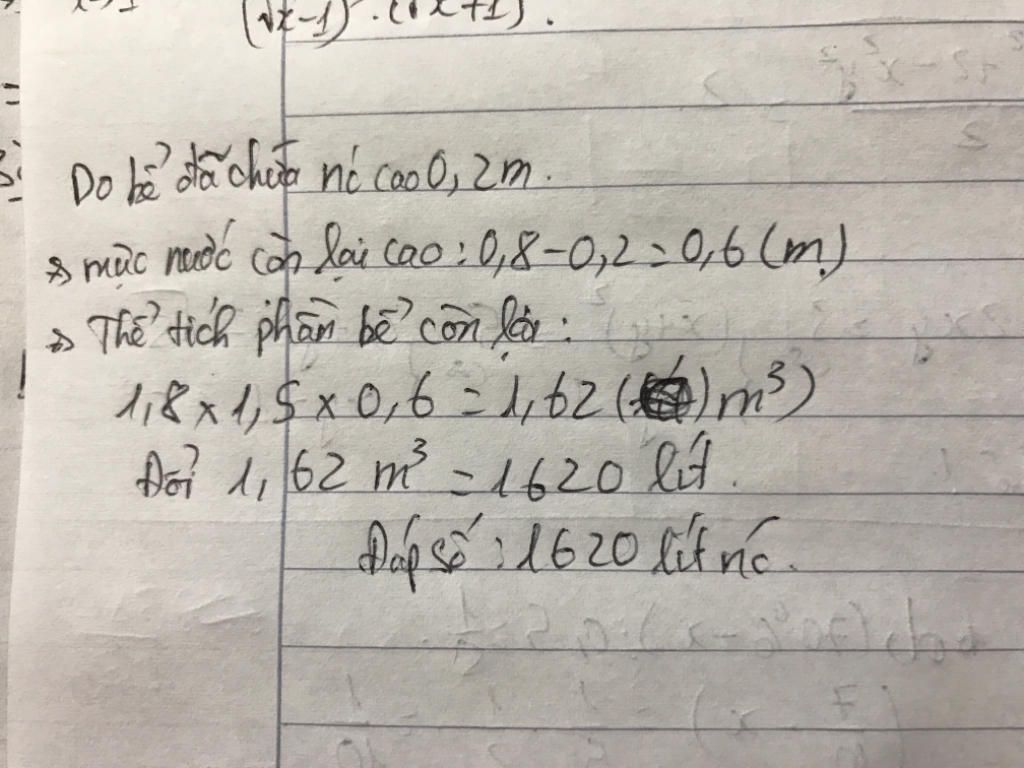 (√x-1) . (√x+1) .
Do bể đã chứa nc cao 0,2m.
=> mực nước còn lại cao : 0,8 - 0,2 = 0,6 (m)
=> Thể tích phần bể còn lại :
1,8 x 1,5 x 0,6 = 1,62 ( ) m³)
Đổi 1,62 m³ = 1620 lít.
Đáp số : 1620 lít nc.